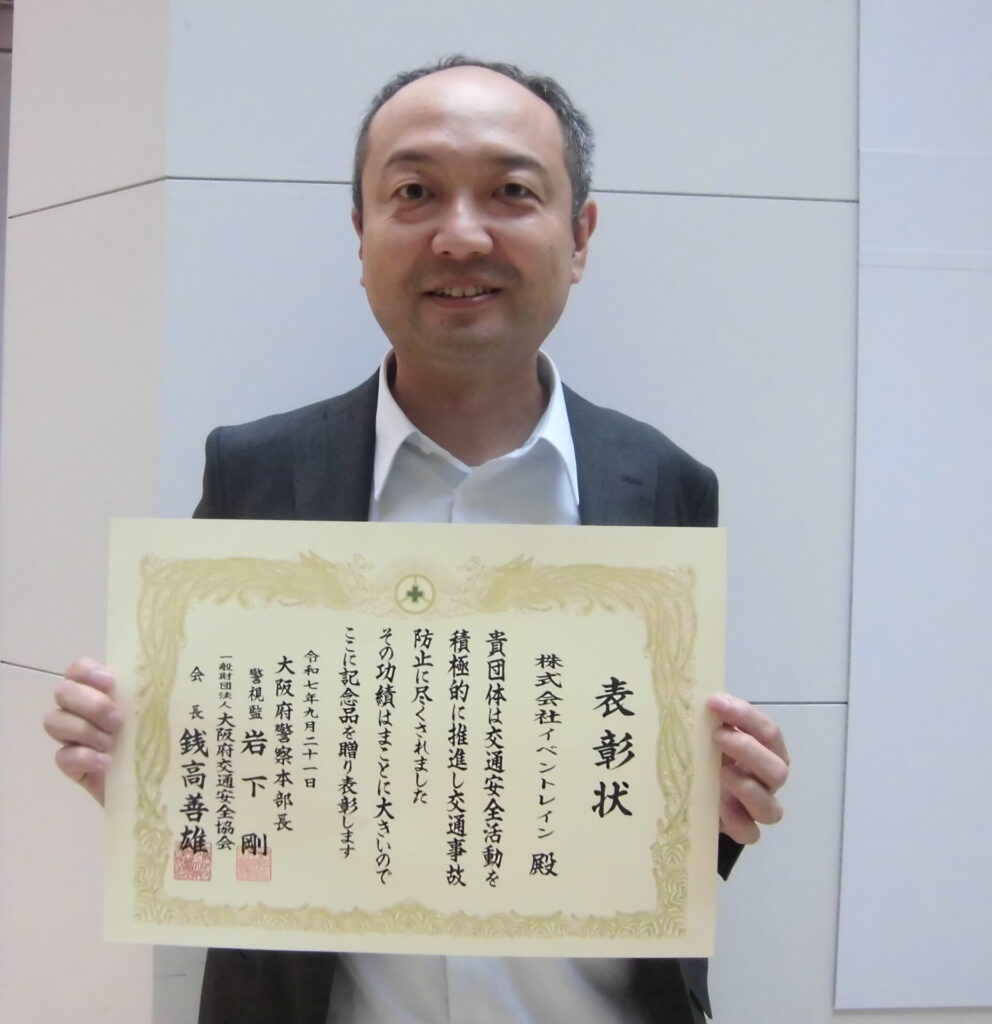 表彰状
株式会社イベントレイン 殿
貴団体は交通安全活動を
積極的に推進し交通事故
防止に尽くされました
その功績はまことに大きいので
ここに記念品を贈り表彰します
令和七年九月二十一日
大阪府警察本部長
警視監 岩下 剛
一般財団法人大阪府交通安全協会
会長 銭高善雄